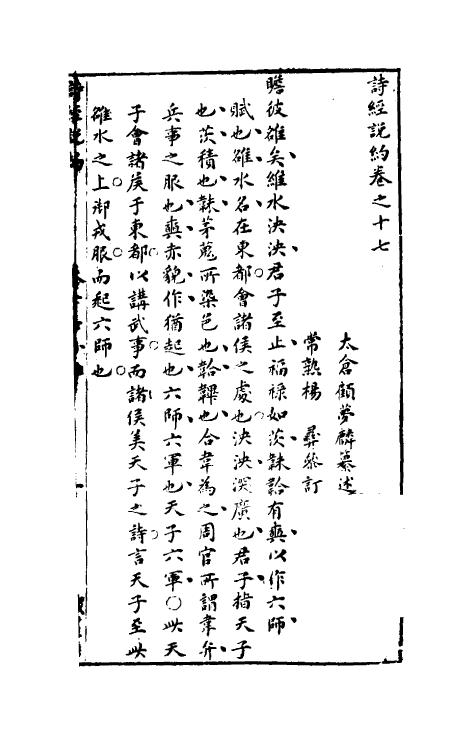 詩經說約卷之十七
太倉顧夢麟纂述
常熟楊彝叅訂
瞻彼雒矣維水泱泱君子至止福祿如茨韎韐有奭以作六師
賦也雒水名在東都會諸侯之處也泱泱深廣也君子指天子
也茨積也韎茅蒐所染色也韐韠也合韋為之周官所謂韋弁
兵事之服也奭赤貌作猶起也六師六軍也天子六軍○此天
子會諸侯于東都以講武事而諸侯美天子之詩言天子至此
雒水之上御戎服而起六師也